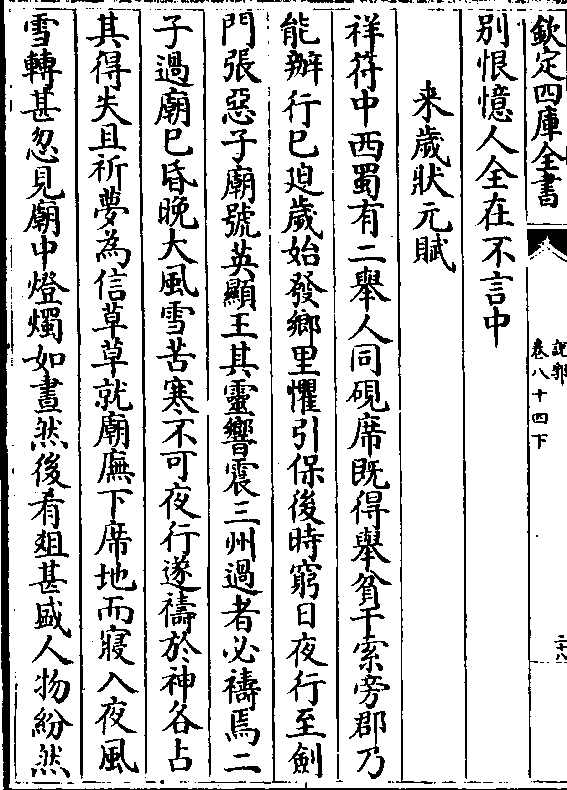 欽定四庫全書
說郛
卷八十四下
二十八
别恨憶人全在不言中
来歲狀元賦
祥符中西蜀有二舉人同硯席既得舉貧干索旁郡乃
能辦行已廹歲始發鄉里懼引保後時窮日夜行至劍
門張惡子廟號英顯王其靈響震三州過者必禱焉二
子過廟已昏晚大風雪苦寒不可夜行遂禱於神各占
其得失且祈夢為信草草就廟廡下席地而寢入夜風
雪轉甚忽見廟中燈燭如晝然後肴爼甚盛人物紛然